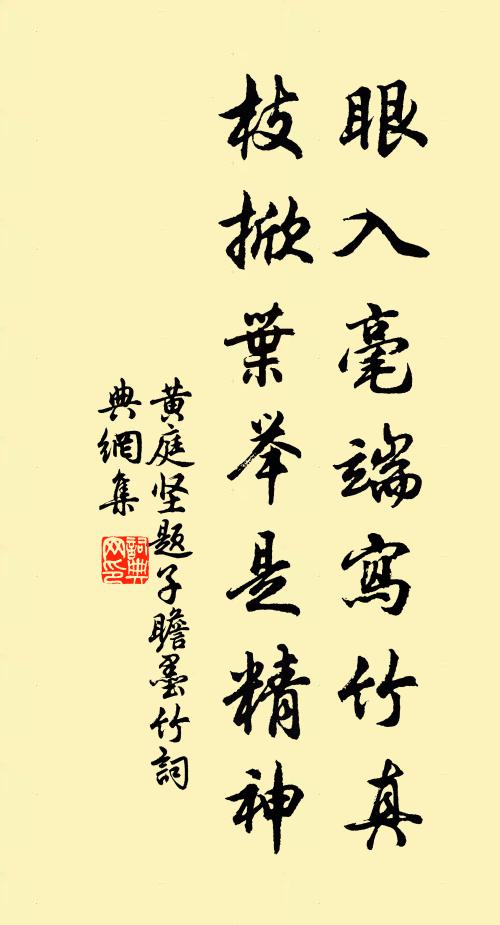 眼入毫端寫竹真
枝掀葉举是精神
黄庭坚題子瞻墨竹詞
典網集
詞典網印